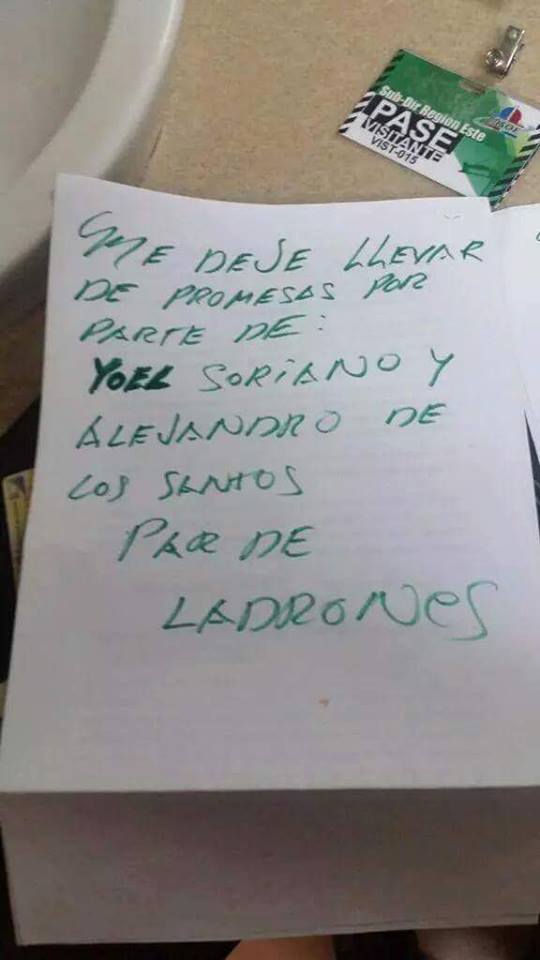 Sub-Dir Region Este
PASE
VISITANTE
VIST-015
ME DEJE LLEVAR
DE PROMESAS POR
PARTE DE:
YOEL SORIANO Y
ALEJANDRO DE
LOS SANTOS
PAR DE
LADRONES